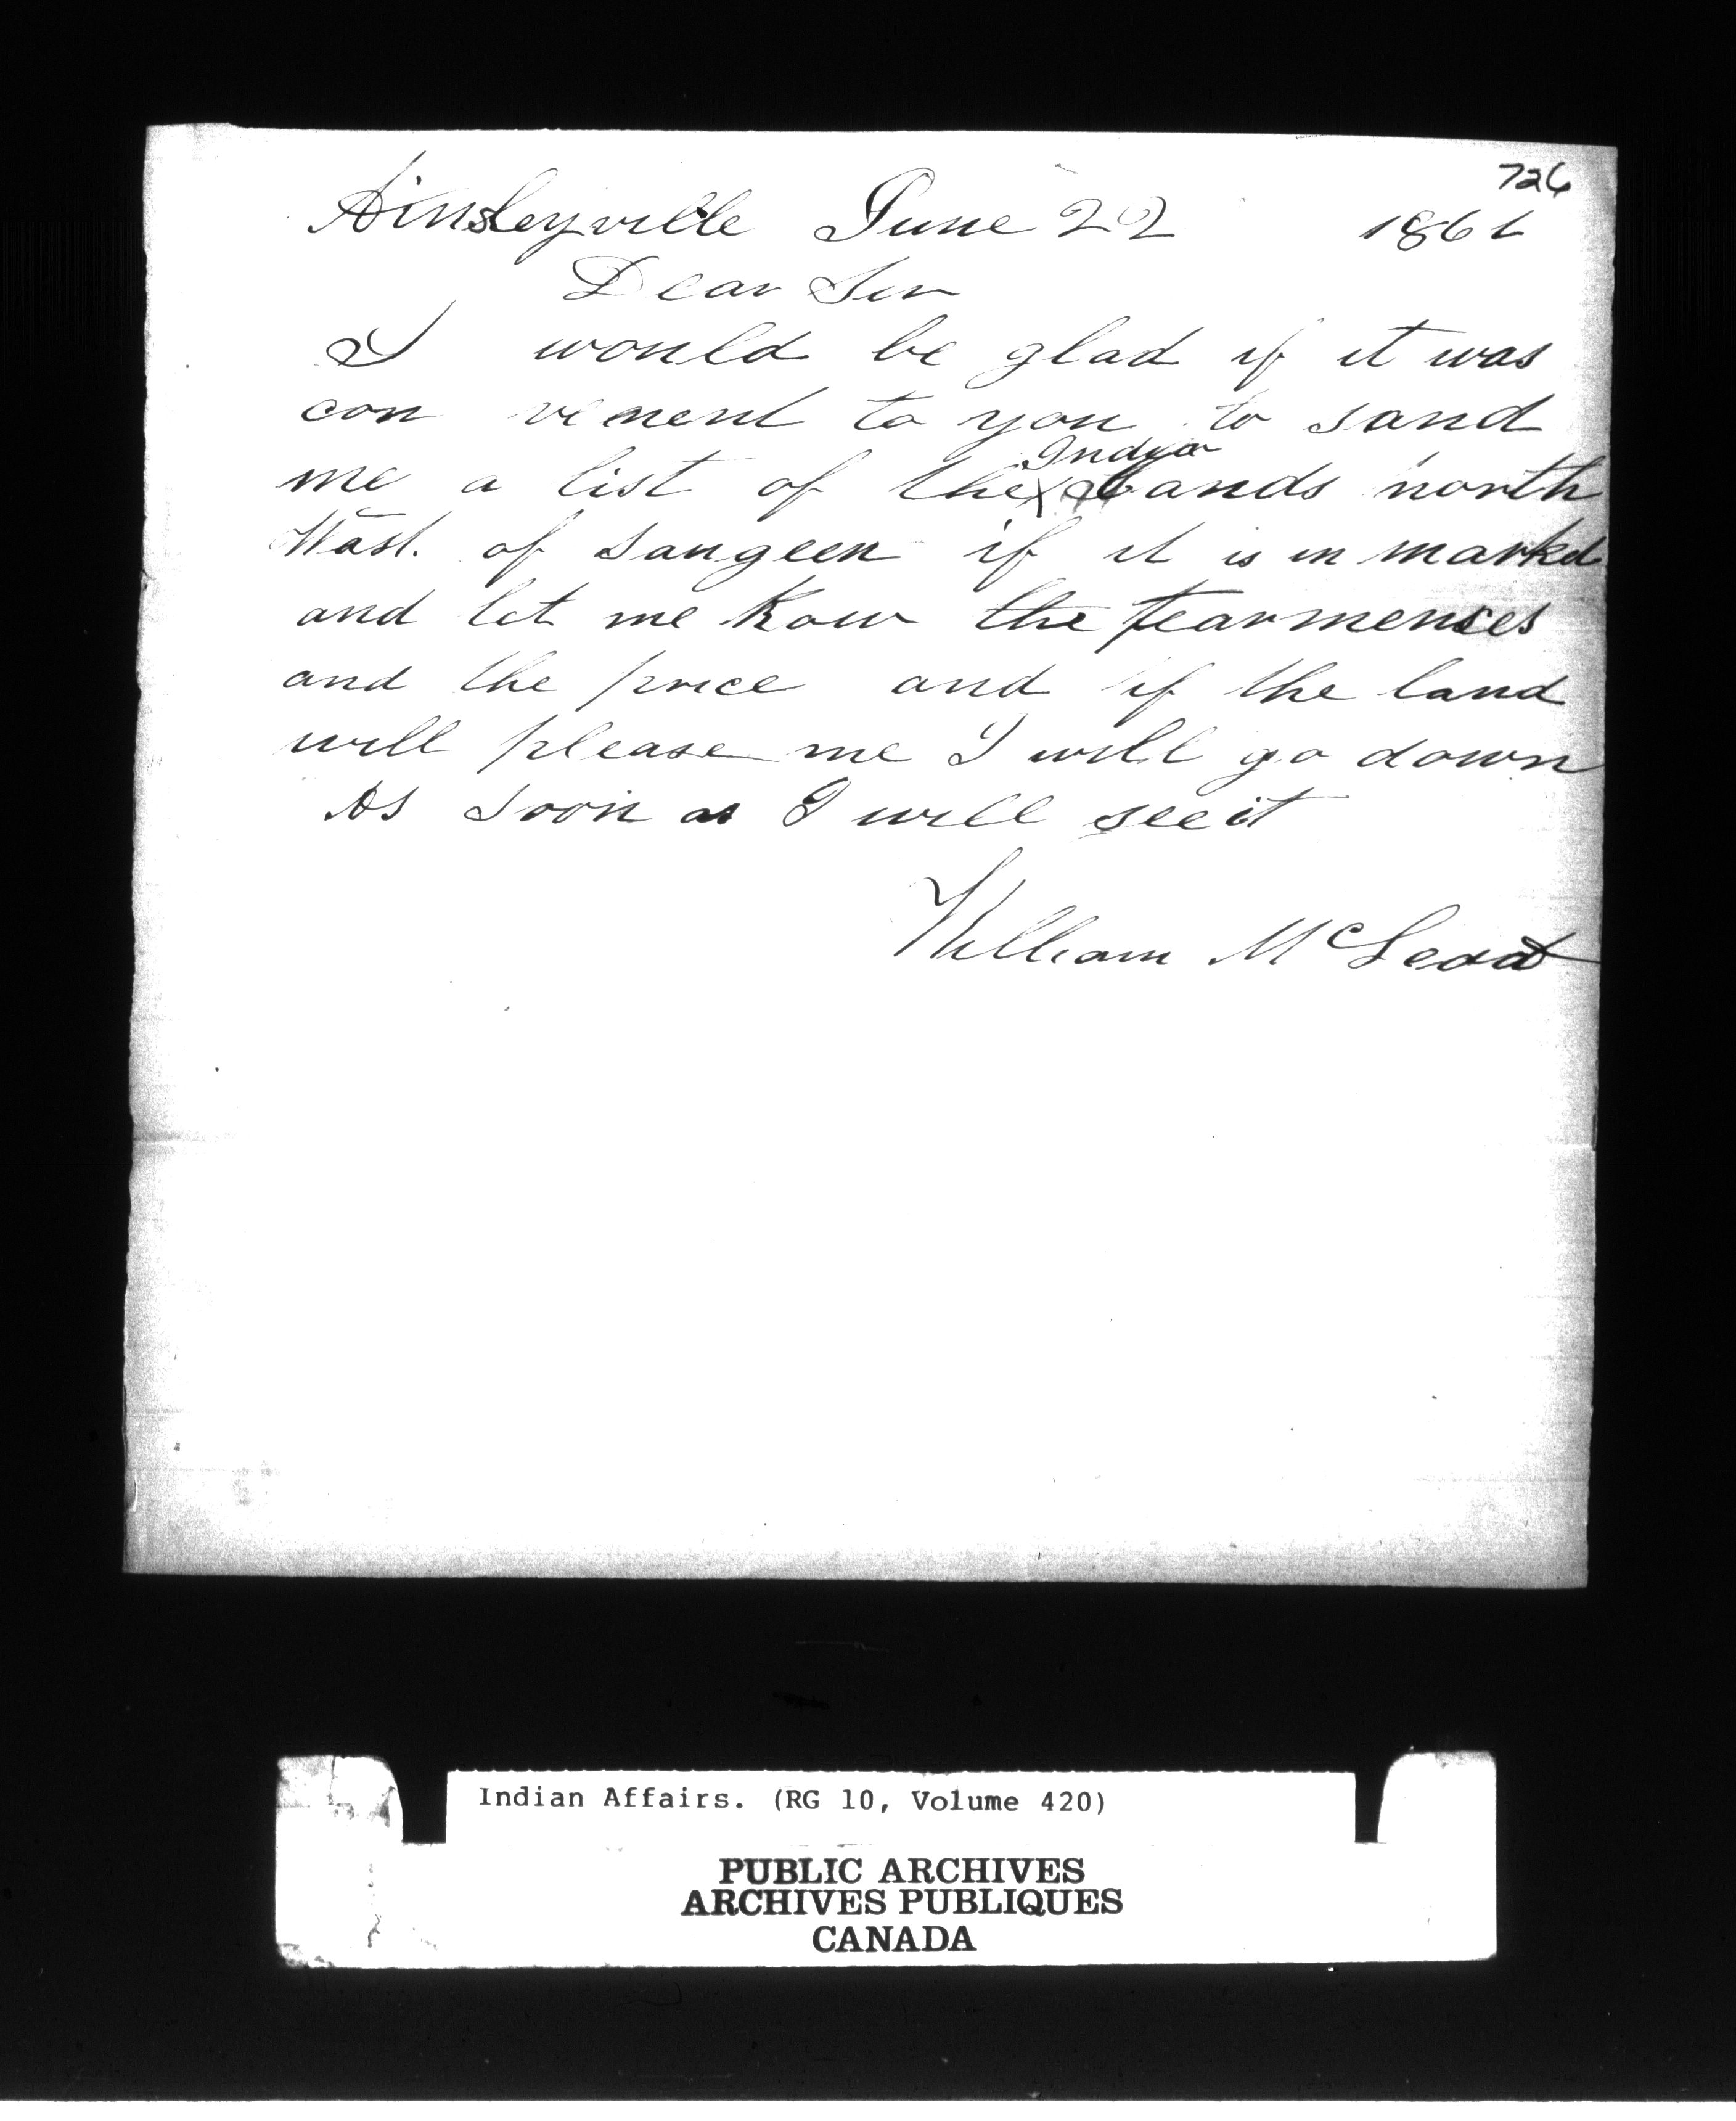 726
Ainsleyville June 22 1861
Dear Sir
I would be glad if it was
con venent to you to sand
Indian
me a list of the lands north
Wast. of Saugeen if it is in marked
and let me Kow the tearmences
and the price and if the land
will please me I will go down
As soon as I will see it
William McLeod
Indian Affairs. (RG 10, Volume 420)
PUBLIC ARCHIVES
ARCHIVES PUBLIQUES
CANADA